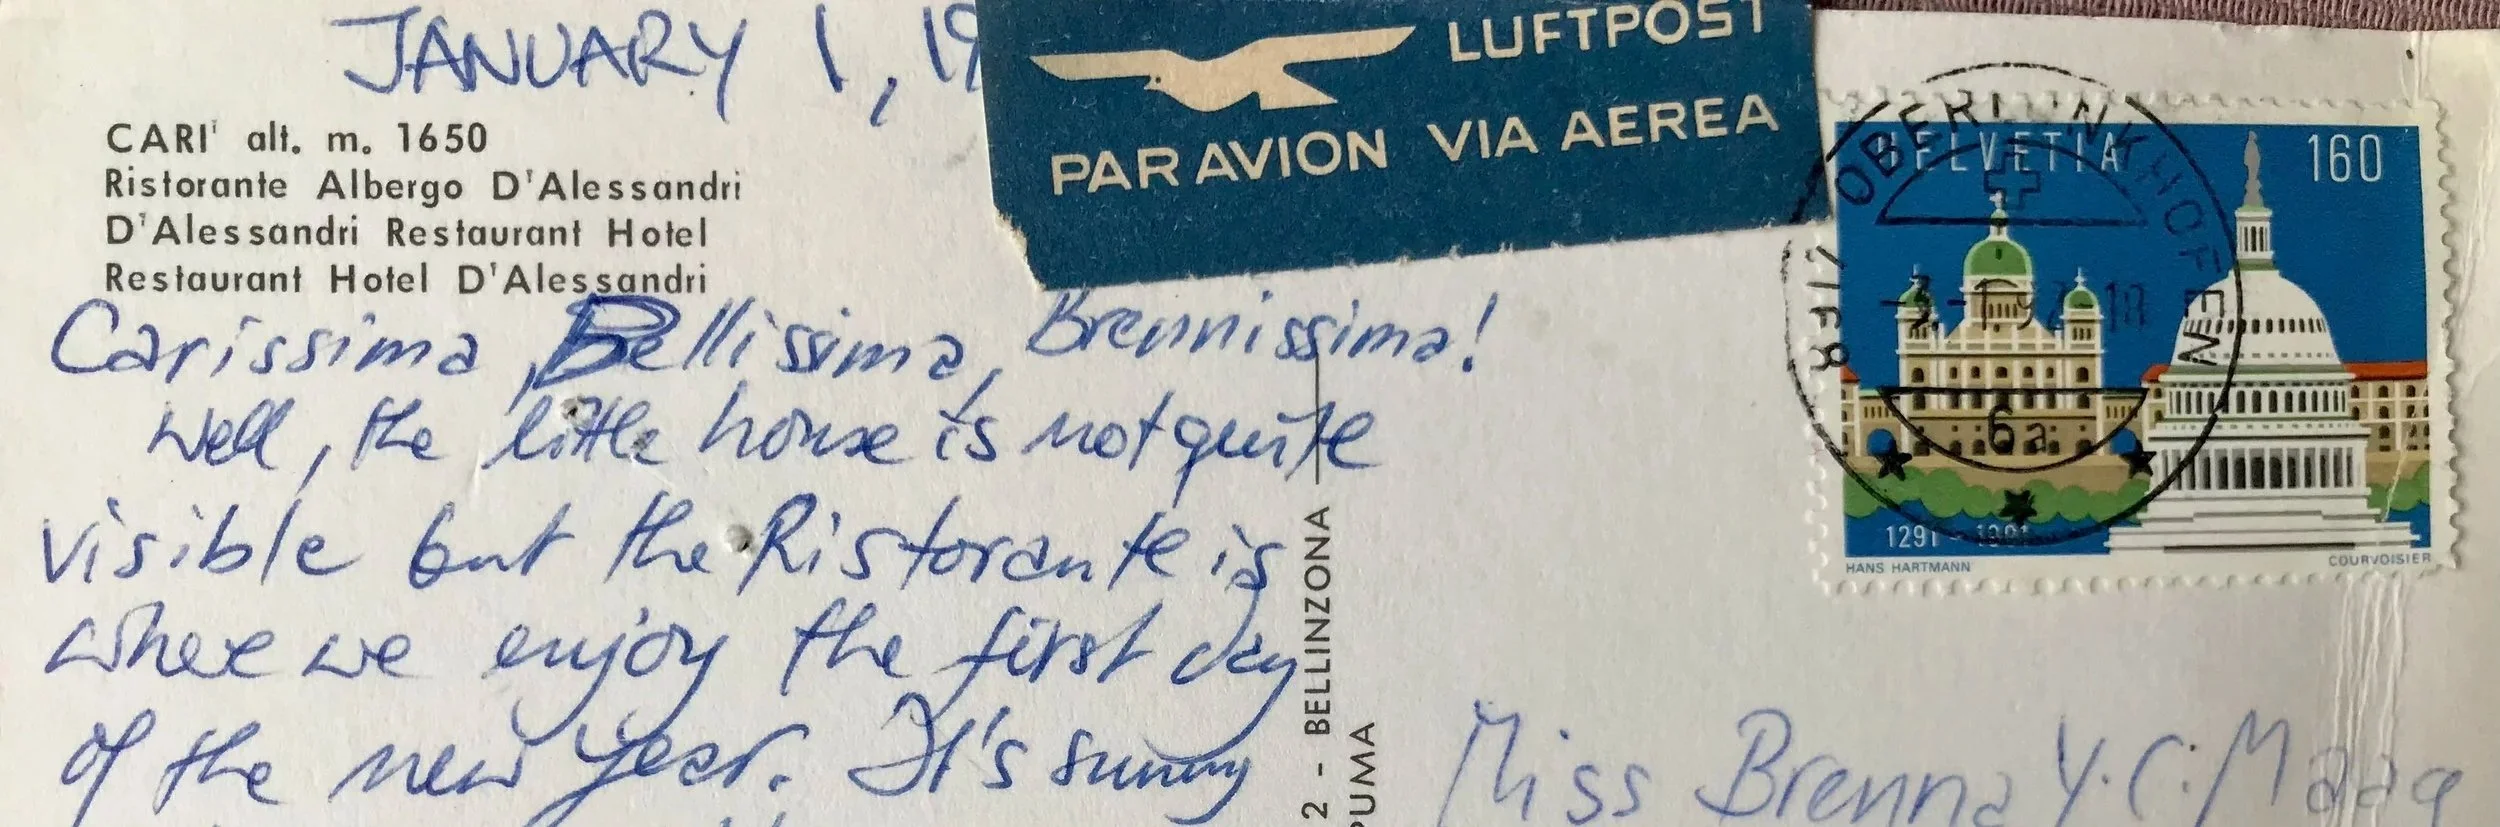 JANUARY 1, 19
LUFTPOST
PAR AVION VIA AEREA
CARI' alt. m. 1650
Ristorante Albergo D'Alessandri
D'Alessandri Restaurant Hotel
Restaurant Hotel D'Alessandri
Carissima, Bellissima, Brennissima!
Well, the little house is not quite
visible but the Ristorante is
where we enjoy the first day
of the new year. It's sunny
2 - BELLINZONA
PUMA
HELVETIA 160
1291 - 1991
HANS HARTMANN COURVOISIER
6a
Miss Brenna Y. C. Maag